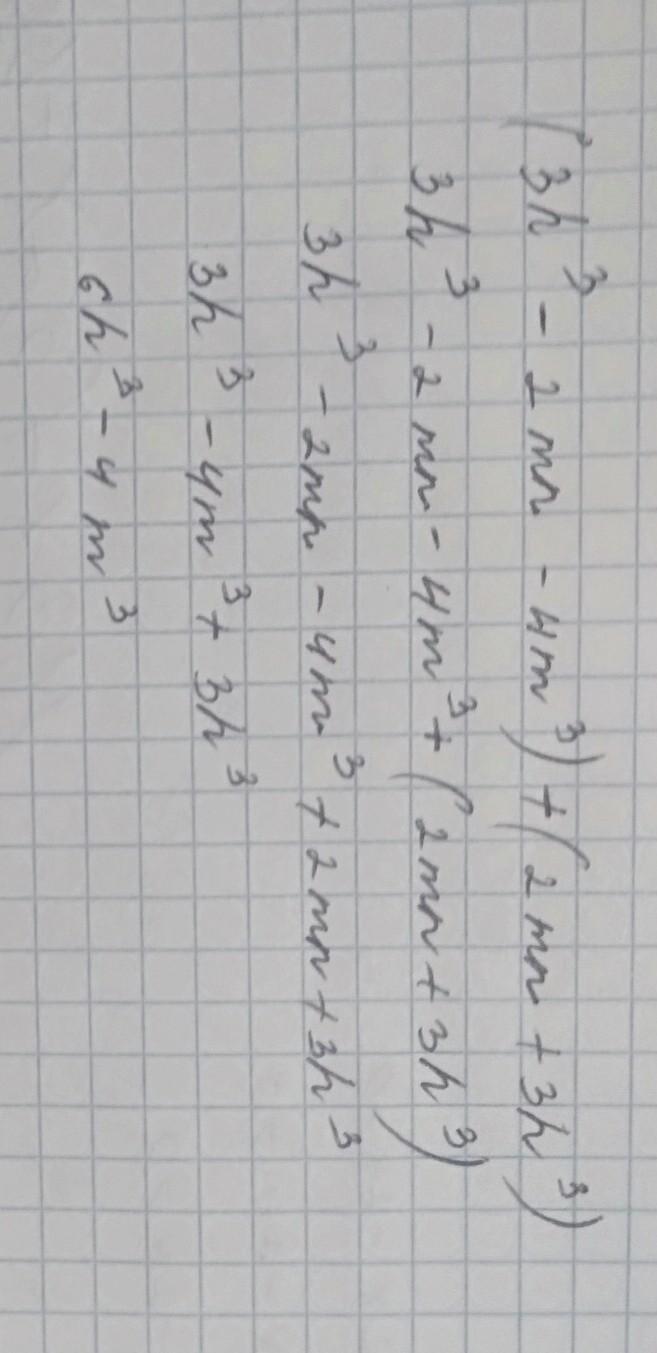 (3h³ - 2mn - 4m³) + (2mn + 3h³)
3h³ - 2mn - 4m³ + (2mn + 3h³)
3h³ - 2mn - 4m³ + 2mn + 3h³
3h³ - 4m³ + 3h³
6h³ - 4m³